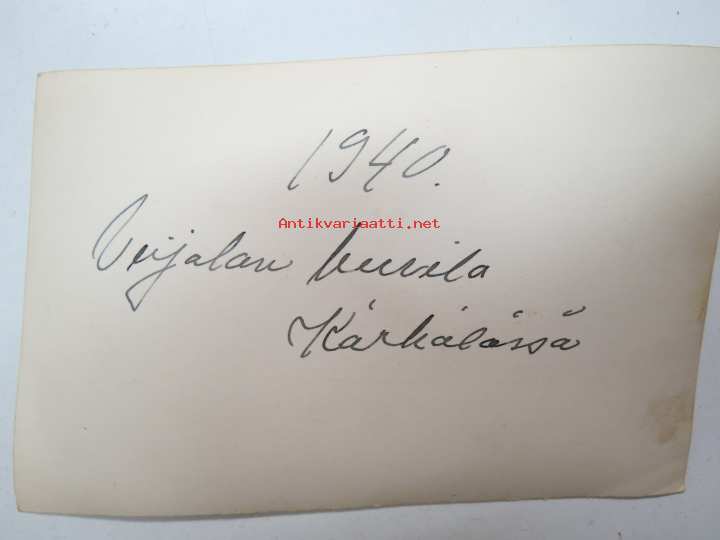 1940.
Antikvariaatti.net
Veijalan huvila
Kärkölässä